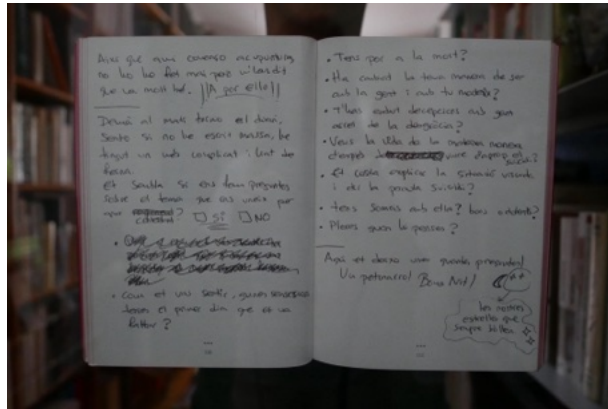 Així que avui començo acupuntura,
no ho he fet mai però m'han dit
que va molt bé. ||A por ello||
Demà al matí torno el diari.
Sento si no he escrit massa, he
tingut un més complicat i tant de
feina.
Et sembla si ens fem preguntes
sobre el tema que ens uneix per
? □ SÍ □ NO
• Com et vas sentir, quines sensacions
tenies el primer dia que et va
?
• Tens por a la mort?
• Ha canviat la teva manera de ser
amb la gent i amb tu mateix?
• T'has endut decepcions amb gent
de la ?
• Veus la vida de la mateixa manera
després
• Et costa explicar la situació viscuda
i dir la paraula suïcidi?
• Tens somnis amb ella? bons o dolents?
• Plores quan la penses?
Aquí et deixo unes quantes preguntes!
Un petonarro! Bona Nit!
Les nostres
estrelles que
sempre brillen